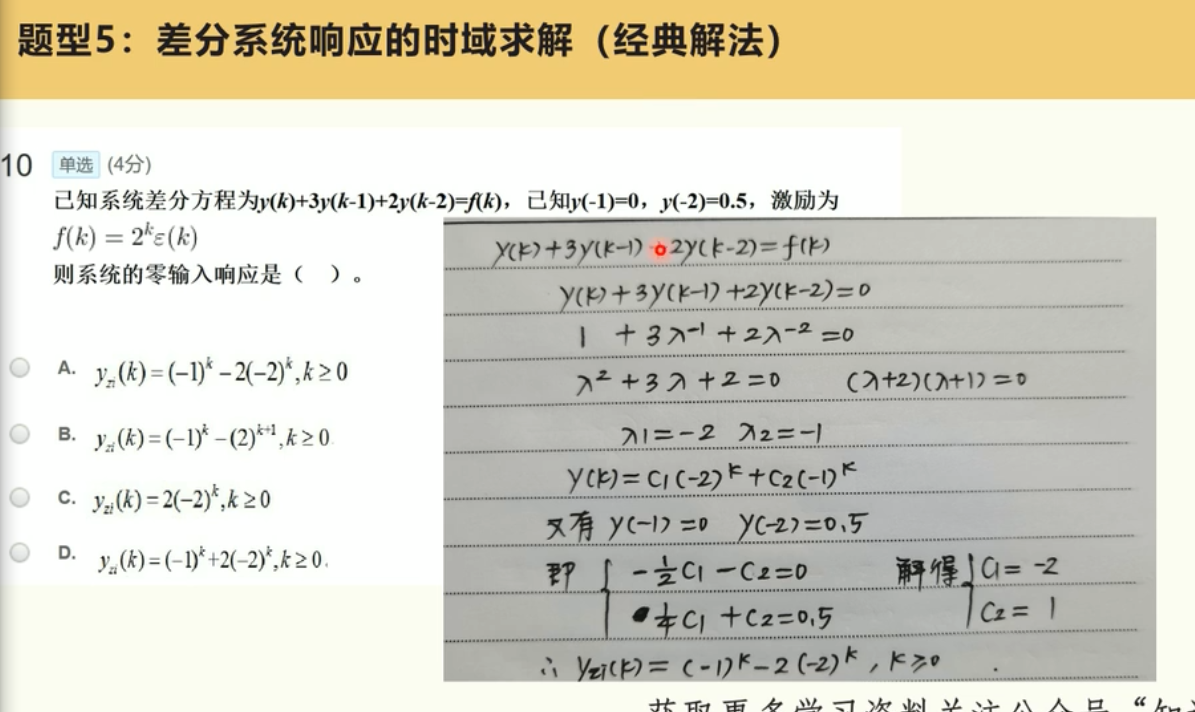 题型5：差分系统响应的时域求解（经典解法）
10 单选 (4分)
已知系统差分方程为y(k)+3y(k-1)+2y(k-2)=f(k)，已知y(-1)=0，y(-2)=0.5，激励为
f(k) = 2^k ε(k)
则系统的零输入响应是（ ）。
A. y_zi(k)=(−1)^k −2(−2)^k, k≥0
B. y_zi(k)=(−1)^k −(2)^{k+1}, k≥0.
C. y_zi(k)=2(−2)^k, k≥0
D. y_zi(k)=(−1)^k+2(−2)^k, k≥0.
y(k)+3y(k-1) 2y(k-2)=f(k)
y(k)+3y(k-1)+2y(k-2)=0
1 +3λ^-1 +2λ^-2 =0
λ^2+3λ+2=0 (λ+2)(λ+1)=0
λ1=-2 λ2=-1
y(k)=C1(-2)^k+C2(-1)^k
又有 y(-1)=0 y(-2)=0.5
即 { -1/2 C1 -C2=0 解得 { C1= -2
1/4 C1 +C2=0.5 C2= 1
∴ yzi(k)= (-1)^k-2(-2)^k, k≥0
获取更多学习资料关注公众号“知